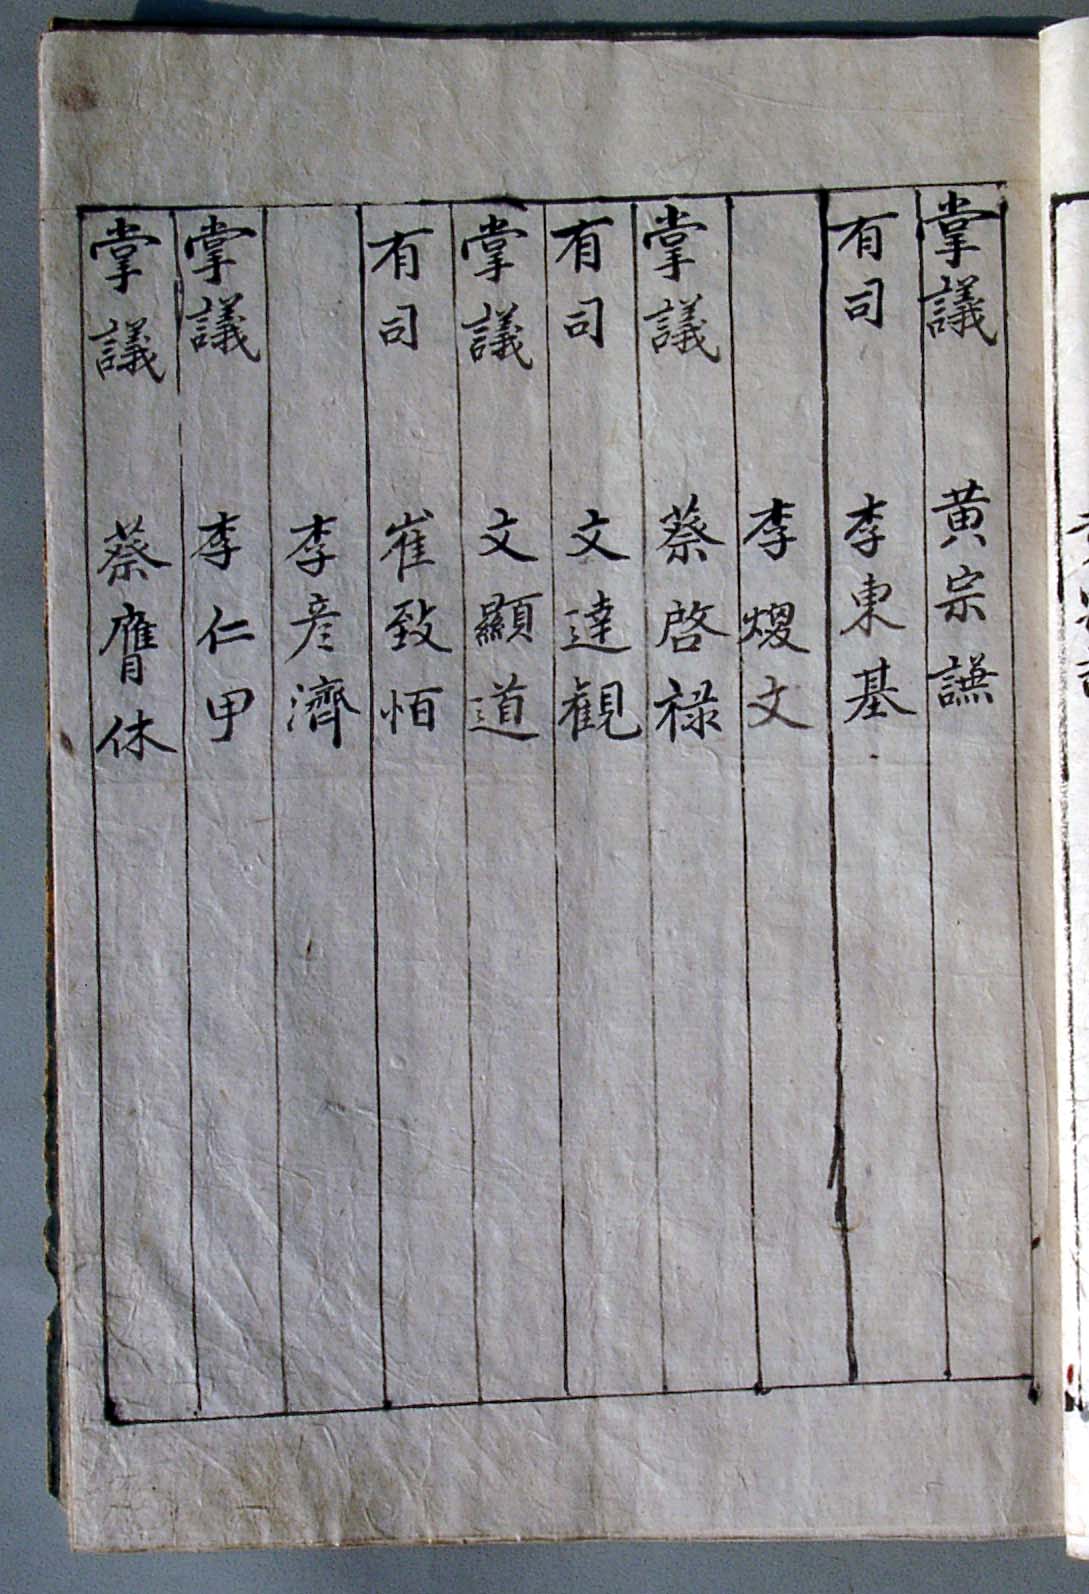 掌議 黄宗謙
有司 李東基
李熤文
掌議 蔡啓祿
有司 文達觀
掌議 文顯道
有司 崔致怕
李彦濟
掌議 李仁甲
掌議 蔡膺休